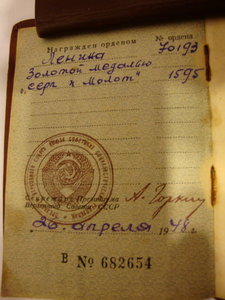 Награжден орденом № ордена
Ленина 70193
Золотой медалью
"серп и Молот" 1595
Секретарь Президиума
Верховного Совета СССР
А. Горкин
"26" апреля 1948 г.
В № 682654